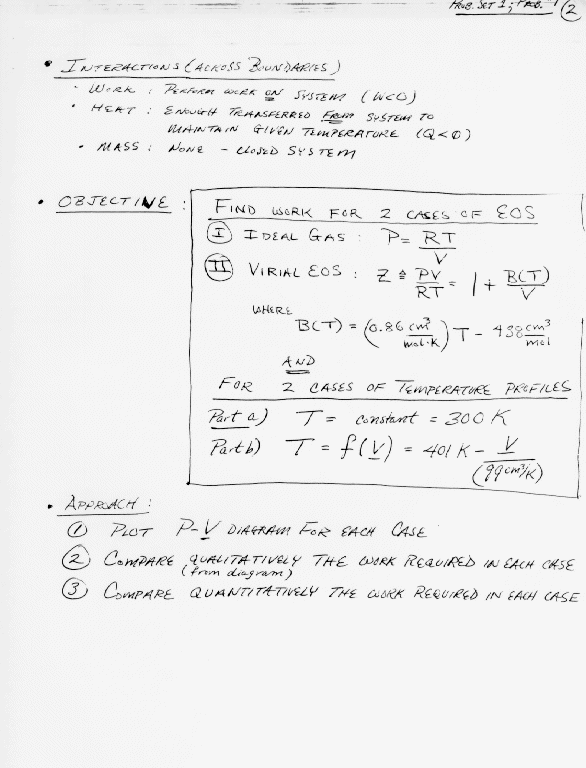 PROB. SET 1; PROB. 1 (2)
• INTERACTIONS (ACROSS BOUNDARIES)
• WORK : PERFORM WORK ON SYSTEM (W<0)
• HEAT : ENOUGH TRANSFERRED FROM SYSTEM TO
MAINTAIN GIVEN TEMPERATURE (Q<0)
• MASS : NONE - CLOSED SYSTEM
• OBJECTIVE :
FIND WORK FOR 2 CASES OF EOS
(I) IDEAL GAS : P = RT/V
(II) VIRIAL EOS : Z ≙ PV/RT = 1 + B(T)/V
WHERE
B(T) = (0.86 cm³/mol·K) T - 438 cm³/mol
AND
FOR 2 CASES OF TEMPERATURE PROFILES
Part a) T = constant = 300 K
Part b) T = f(V) = 401 K - V/(99 cm³/K)
• APPROACH :
(1) PLOT P-V DIAGRAM FOR EACH CASE
(2) COMPARE QUALITATIVELY THE WORK REQUIRED IN EACH CASE
(from diagram)
(3) COMPARE QUANTITATIVELY THE WORK REQUIRED IN EACH CASE